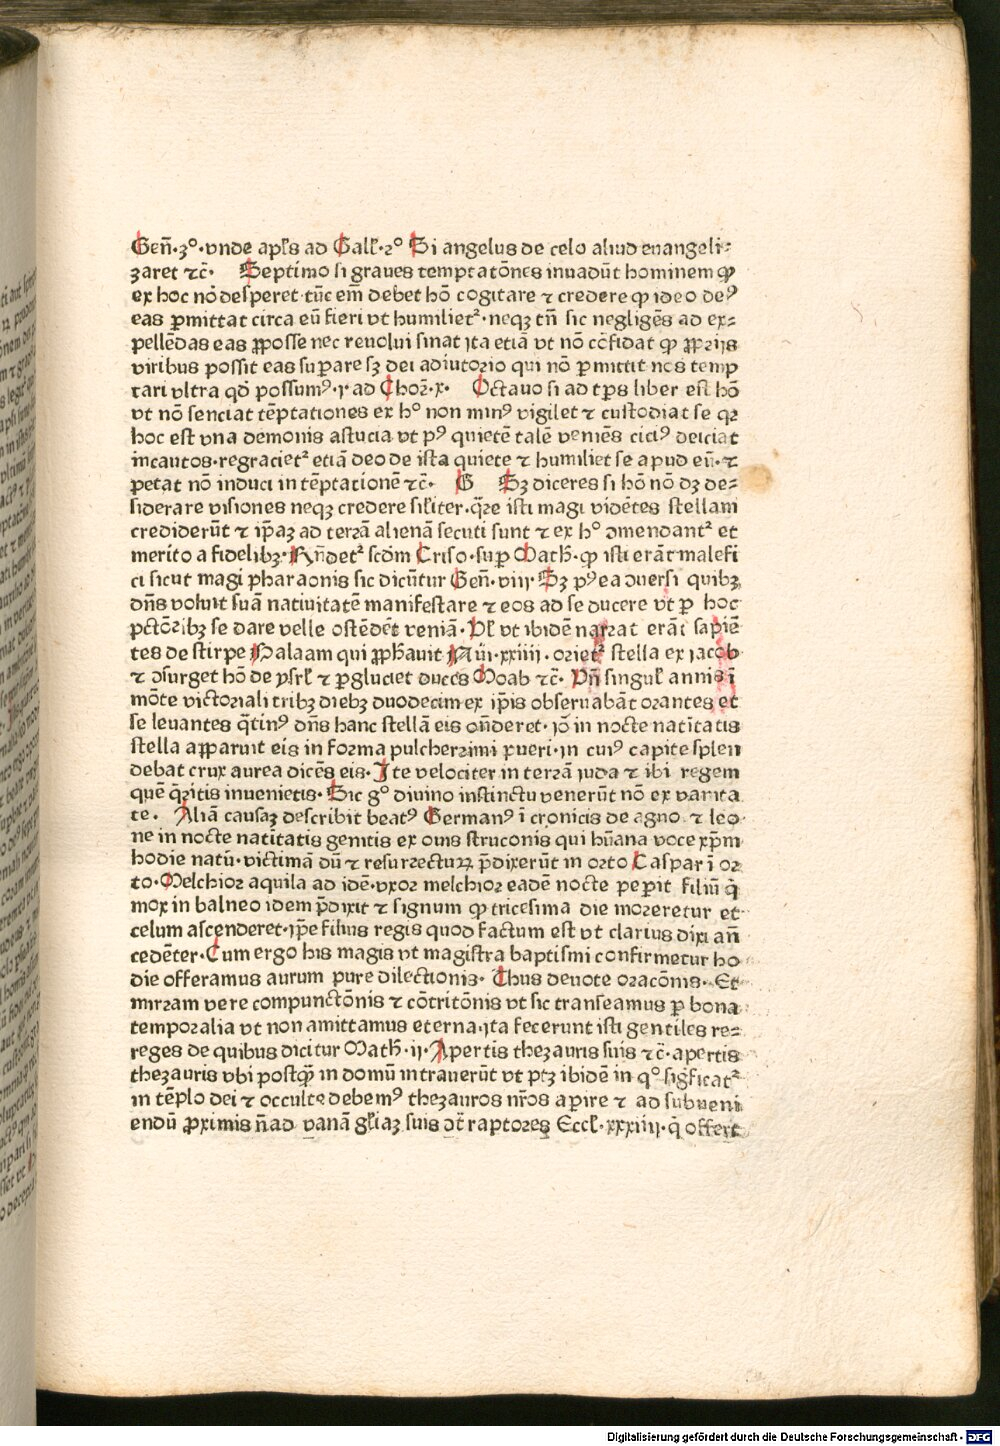 Gen̄·3°·vnde apl̄s ad Gall̄·2° Si angelus de celo aliud euangeli-
zaret ⁊c̄· Septimo si graues temptatōnes inuadūt hominem ꝙ
ex hoc nō desperet·tūc em̄ debet hō cogitare ⁊ credere ꝙ ideo deꝰ
eas ꝑmittat circa eū fieri vt humilietᷣ·neqꝫ tn̄ sic negligēs ad ex-
pellēdas eas ꝓposse nec reuolui sinat ita etiā vt nō cōfidat ꝙ ꝓprijs
viribus possit eas suꝑare sꝫ dei adiutorio qui nō ꝑmittit nos temp
tari vltra qd̄ possumꝰ·i·ad Chor̄·x· Octauo si ad tp̄s liber est hō
vt nō senciat tēptationes ex h° non minꝰ vigilet ⁊ custodiat se qꝛ
hoc est vna demonis astucia vt pꝰ quietē talē veniēs ciciꝰ deiciat
incautos·regracietᷣ etiā deo de ista quiete ⁊ humiliet se apud eū·⁊
petat nō induci in tēptationē ⁊c̄· G Sꝫ diceres si hō nō dꝫ de-
siderare visiones neqꝫ credere sil̄iter·q̄re isti magi vidētes stellam
crediderūt ⁊ ip̄aꝫ ad terrā alienā secuti sunt ⁊ ex h° ꝯmendantᷣ et
merito a fidelibꝫ·Rn̄detᷣ scd̄m Criso·suꝑ Math̄·ꝙ isti erāt malefi
ci sicut magi pharaonis sic dicūtur Gen̄·viij·Sꝫ pꝰea ꝯuersi quibꝫ
dn̄s voluit suā natiuitatē manifestare ⁊ eos ad se ducere vt ꝑ hoc
pctōribꝫ se dare velle ostēdēt veniā·Vl̄ vt ibidē narrat erāt sapiē
tes de stirpe Balaam qui ꝓph̄auit Nūi·xxiiij·orietᷣ stella ex jacob
⁊ ꝯsurget hō de ysrl̄ ⁊ ꝑgluciet duces Moab ⁊c̄· Vn̄ singul̄ annis ī
mōte victoriali tribꝫ diebꝫ duodecim ex ip̄is obseruabāt orantes et
se leuantes q̄tinꝰ dn̄s hanc stellā eis on̄deret·iō in nocte natītatis
stella apparuit eis in forma pulcherrimi pueri·in cuiꝰ capite splen
debat crux aurea dicēs eis·Ite velociter in terrā iuda ⁊ ibi regem
quē q̄ritis inuenietis·Sic g° diuino instinctu venerūt nō ex varita
te· Aliā causaꝫ describit beatꝰ Germanꝰ ī cronicis de agno ⁊ leo
ne in nocte natītatis genitis ex ouis struconis qui hūana voce xp̄m
hodie natū·victimā dū ⁊ resurrectuꝝ p̄dixerūt in orto Caspar ī or
to·Melchior aquila ad idē·vxor melchior eadē nocte peperit filiū q̄
mox in balneo idem p̄dixit ⁊ signum ꝙ tricesima die moreretur et
celum ascenderet·ip̄e filius regis quod factum est vt clarius dixi an̄
cedēter·Cum ergo his magis vt magistra baptismi confirmetur ho
die offeramus aurum pure dilectionis· Thus deuote oracōnis· Et
mirram vere compunctōnis ⁊ cōtritōnis vt sic transeamus ꝑ bona
temporalia vt non amittamus eterna·ita fecerunt isti gentiles re-
reges de quibus dicitur Math̄·ij·Apertis thezauris suis ⁊c̄·apertis
thezauris vbi postꝙ̄ in domū intrauerūt vt ptꝫ ibidē in q° sigficatᷣ
in tēplo dei ⁊ occulte debemꝰ thezauros nr̄os aperire ⁊ ad subueni
endū ꝓximis n̄ ad vanā gl̄iaꝫ suis dt̄ raptores Eccl̄·xxxiiij·q̄ offert